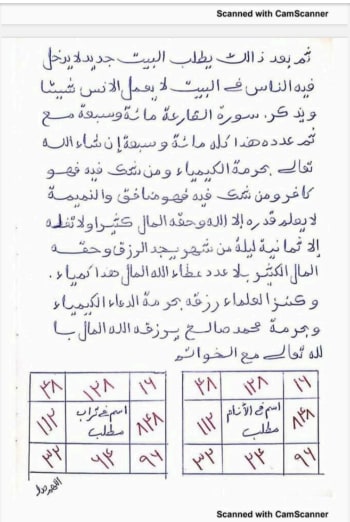 Scanned with CamScanner
ثم بعد ذالك يطلب البيت جديد لا يدخل
فيه الناس في البيت لا يعمل الانس شيئا
ويذكر. سورة القارعة مائة وسبعة مع
ثم عدده هذا كله مائة وسبعة إن شاء الله
تعالى بحرمة الكيمياء ومن شك فيه فهو
كافر ومن شك فيه فهو منافق والنميمة
لا يعلم قدره إلا الله وحقه المال كثيرا ولا
إلا ثمانية ليلة من شهر يجد الرزق وحقه
المال الكثير بلا عدد عطاء الله المال هذا كمياء.
وكنز العلماء رزقه بحرمة الدعاء الكيمياء
وبحرمة محمد صالح يرزقه الله المال با
لله تعالى مع الخواتم
٣٨ ١٢٨ ١٦ ٣٨ ١٢٨ ١٦
١١٢ اسم في تراب مطلب ٨٤٨ ١١٢ اسم في الأنام مطلب ٨٤٨
٣٢ ٦٤ ٩٦ ٣٢ ٢٤ ٩٦
Scanned with CamScanner